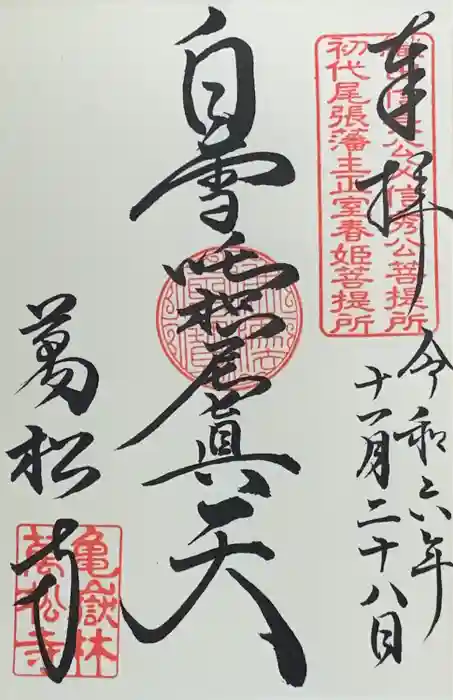 奉拝
織田信長公父信秀公菩提所
初代尾張藩主正室春姫菩提所
令和六年
十一月二十八日
白雪吒枳尼眞天
萬松寺
亀嶽林
萬松寺